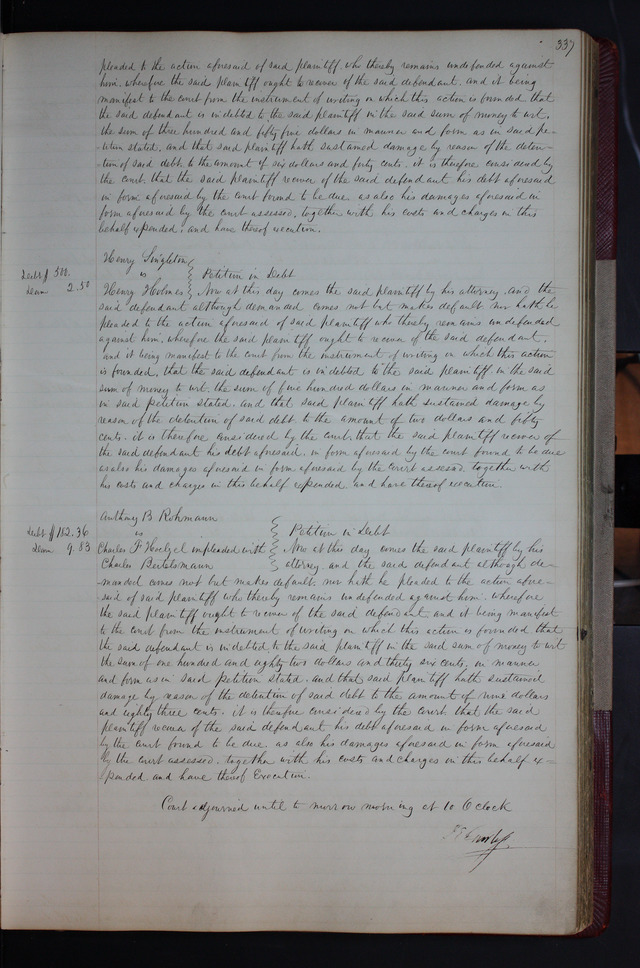 337
pleaded to the action aforesaid of said plaintiff. who thereby remains undefended against
him. wherefore the said plaintiff ought to recover of the said defendant. and it being
manifest to the court from the instrument of writing on which this action is founded that
the said defendant is indebted to the said plaintiff in the said sum of money to wit.
the sum of three hundred and fifty five dollars in manner and form as in said pe-
-tition stated. and that said plaintiff hath sustained damage by reason of the deten-
-tion of said debt. to the amount of six dollars and forty cents. it is therefore considered by
the court. that the said plaintiff recover of the said defendant his debt aforesaid
in form aforesaid by the court found to be due as also his damages aforesaid in
form aforesaid by the court assessed. together with his costs and charges in this
behalf expended. and have thereof execution.
Henry Singleton
Debt $ 500.
vs Petition in Debt
Dam 2.50
Henry Holmes Now at this day comes the said plaintiff by his attorney. and the
said defendant although demanded comes not but makes default nor hath he
pleaded to the action aforesaid of said plaintiff who thereby remains undefended
against him. wherefore the said plaintiff ought to recover of the said defendant.
and it being manifest to the court from the instrument of writing on which this action
is founded, that the said defendant is indebted to the said plaintiff in the said
sum of money to wit. the sum of five hundred dollars in manner and form as
in said petition stated. and that said plaintiff hath sustained damage by
reason of the detention of said debt. to the amount of two dollars and fifty
cents. it is therefore considered by the court. that the said plaintiff recover of
the said defendant his debt aforesaid. in form aforesaid by the court found to be due
as also his damages aforesaid in form aforesaid by the court assessed. together with
his costs and charges in this behalf expended. and have thereof execution.
Anthony B. Rohmann
Debt $ 182.36
vs Petition in Debt
Dam 9.83
Charles F. Hoelzel impleaded with Now at this day comes the said plaintiff by his
Charles Bertelsmann attorney. and the said defendant although de-
-manded comes not but makes default. nor hath he pleaded to the action afore-
said of said plaintiff who thereby remains undefended against him. wherefore
the said plaintiff ought to recover of the said defendant and it being manifest
to the court from the instrument of writing on which this action is founded that
the said defendant is indebted to the said plaintiff in the said sum of money to wit
the sum of one hundred and eighty two dollars and thirty six cents, in manner
and form as in said petition stated. and that said plaintiff hath sustained
damage by reason of the detention of said debt to the amount of nine dollars
and eighty three cents. it is therefore considered by the court that the said
plaintiff recover of the said defendant his debt aforesaid in form aforesaid
by the court found to be due. as also his damages aforesaid in form aforesaid
by the court assessed. together with his costs and charges in this behalf ex-
-pended. and have thereof Execution.
Court adjourned until to morrow morning at 10 O'clock